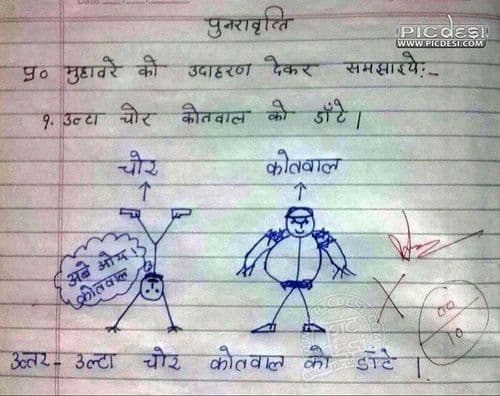 पुनरावृत्ति
PICDESI
WWW.PICDESI.COM
प्र० मुहावरे को उदाहरण देकर समझाइये:-
१. उल्टा चोर कोतवाल को डाँटे ।
चोर कोतवाल
अबे ओय !
कोतवाल
00
10
उत्तर- उल्टा चोर कोतवाल को डाँटे ।